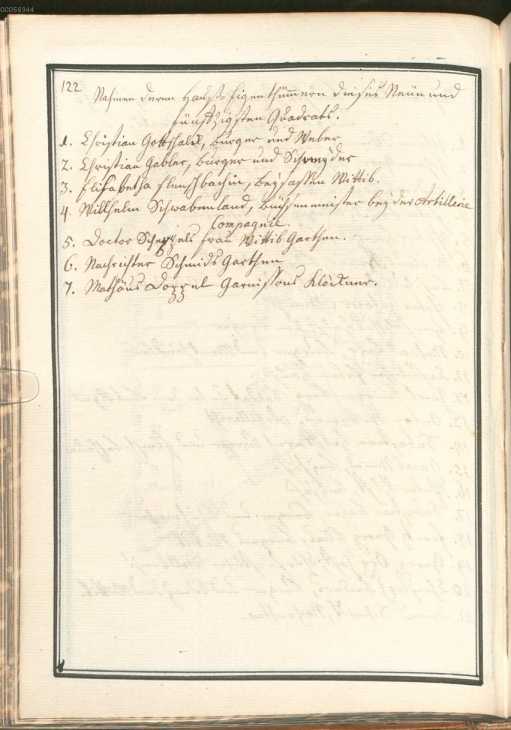 00056944
122
Nahmen deren Hauß Eigenthümern dieses Neun und
fünffzigsten Quadrats.
1. Christian Gotthald, Burger und Weber
2. Christian Gabler, Burger und Schneyder
3. Elisabetha Flenschbachin, Beysassen Wittib.
4. Willhelm Schwabenland, Büchsenmeister bey der Artillerie
Compagnie.
5. Doctor Scheppels Frau Wittib Garthen.
6. Nachrichter Schmids Garthen
7. Mathäus Doppel Garnisons Klöckner.